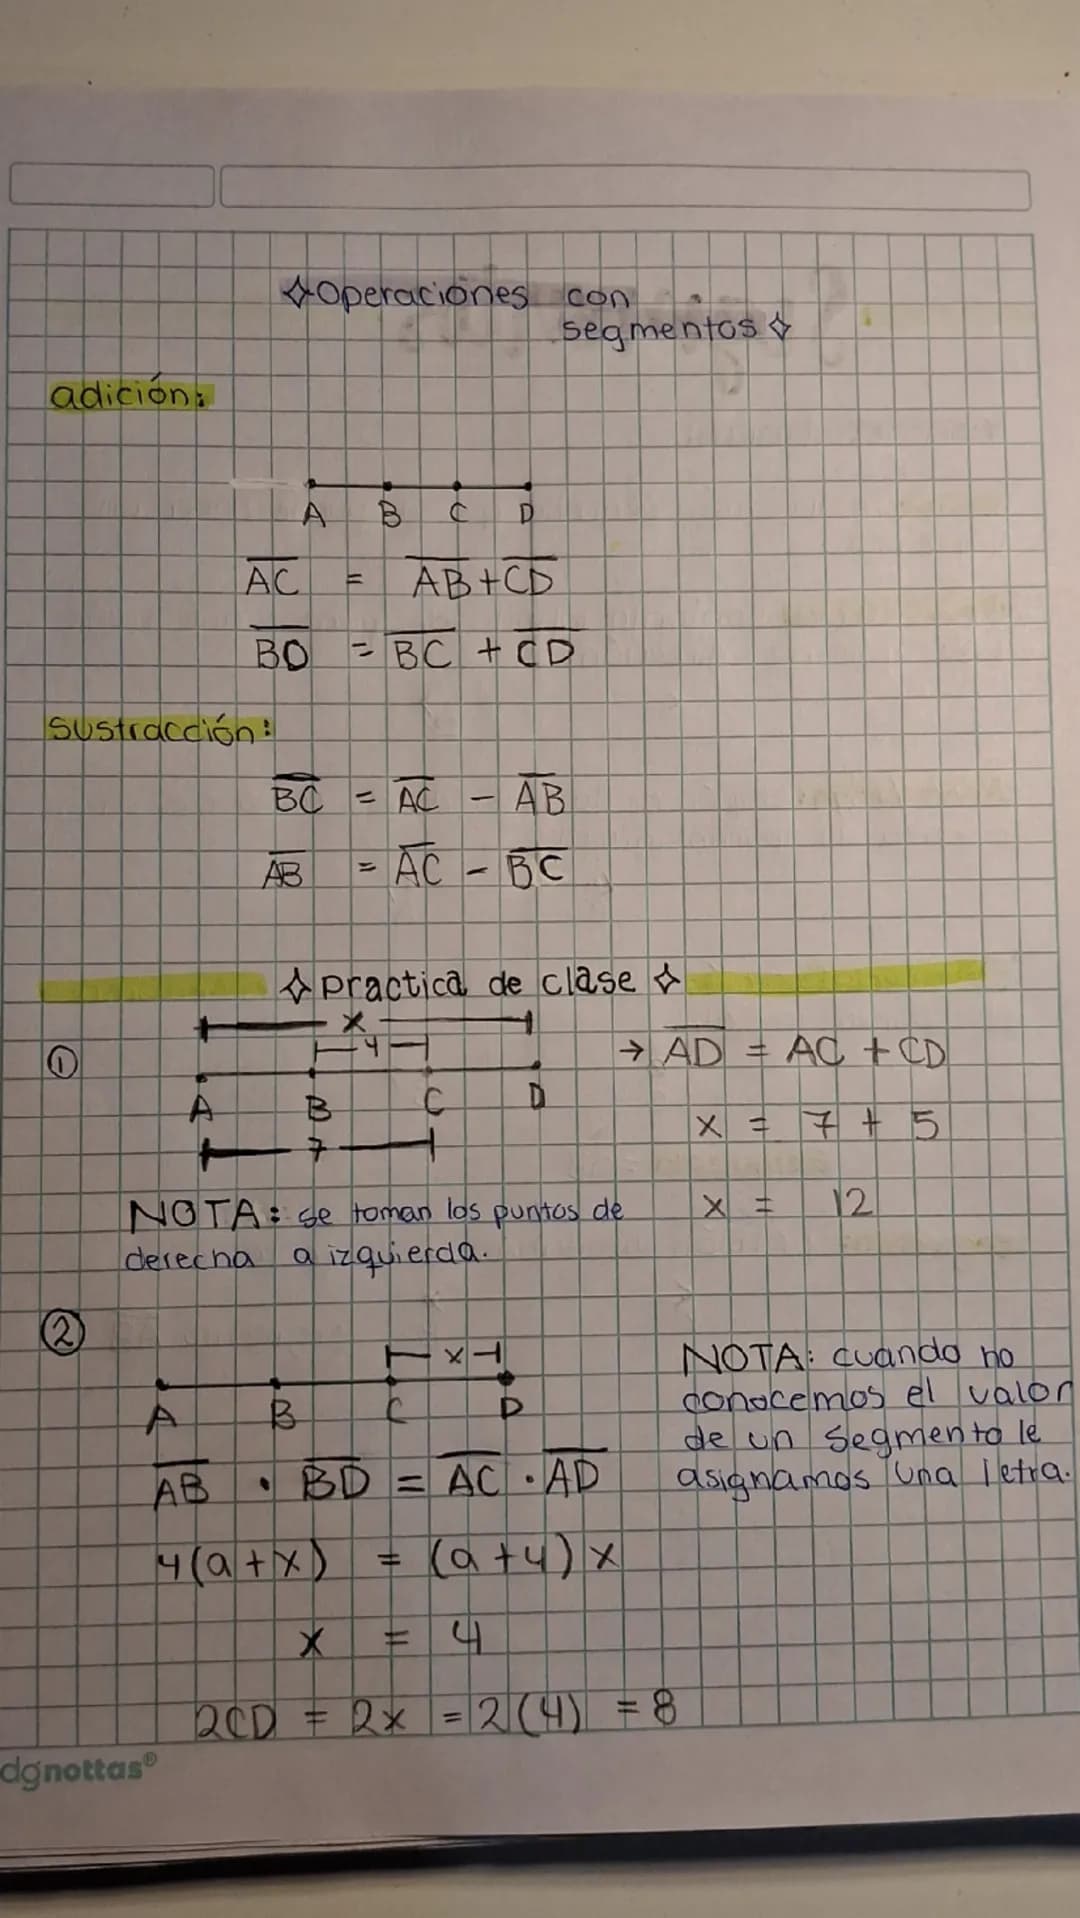 ✧Operaciones con
segmentos✧
adición:
A B C D
AC = AB + CD
BD = BC + CD
sustracción:
BC = AC - AB
AB = AC - BC
✧ practica de clase ✧
①
x
4
A B C D
7
→ AD = AC + CD
x = 7 + 5
x = 12
NOTA: se toman los puntos de
derecha a izquierda.
②
x
A B C D
NOTA: cuando no
conocemos el valor
de un segmento le
asignamos una letra.
AB · BD = AC · AD
4(a+x) = (a+4)x
x = 4
2CD = 2x = 2(4) = 8
dgnottas®